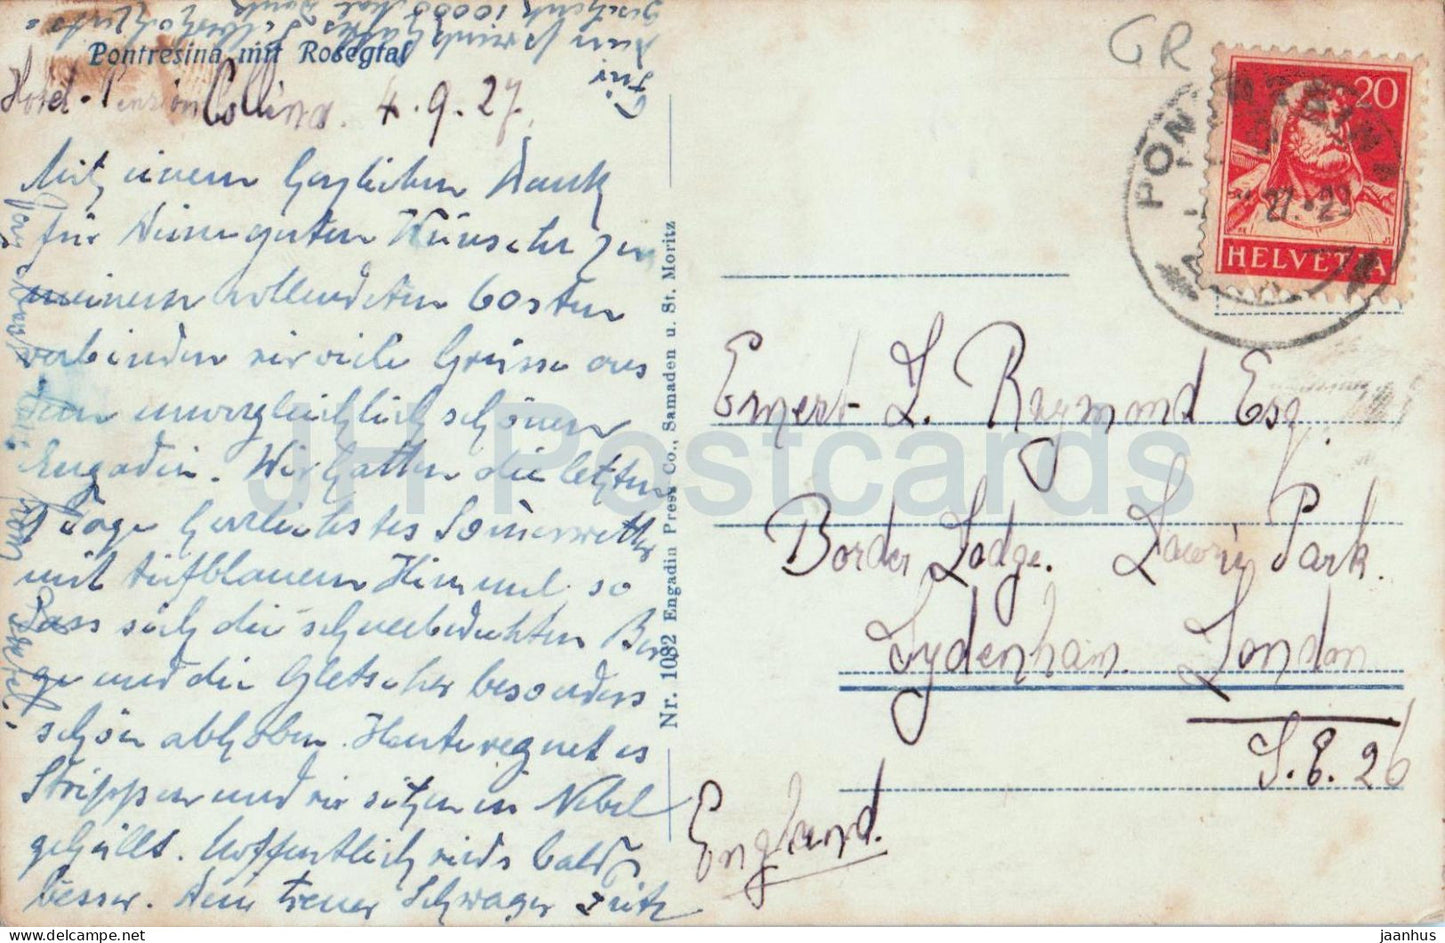 Pontresina mit Rosegtal
Hotel-Pension Collina. 4.9.27.
Mit einem herzlichen Dank
für Deine guten Wünsche zu
meinem vollendeten 60sten
verbinden wir viele Grüsse aus
dem unvergleichlich schönen
Engadin. Wir hatten die letzten
Tage herrlichstes Somerwetter
mit tiefblauem Himmel so
dass sich die schneebedeckten Ber
ge und die Gletscher besonders
schön abhoben. Heute regnet es
Strippen und wir sitzen in Nebel
gehüllt. Hoffentlich wirds bald
besser. Dein treuer Schwager Fritz
Nr. 1082 Engadin Press Co., Samaden u. St. Moritz
GR
20
HELVETIA
PONTRESINA
Ernest L. Raymond Esq.
Border Lodge. Lawrie Park.
Sydenham London
S.E. 26
England.
JH Postcards
jaanhus.com